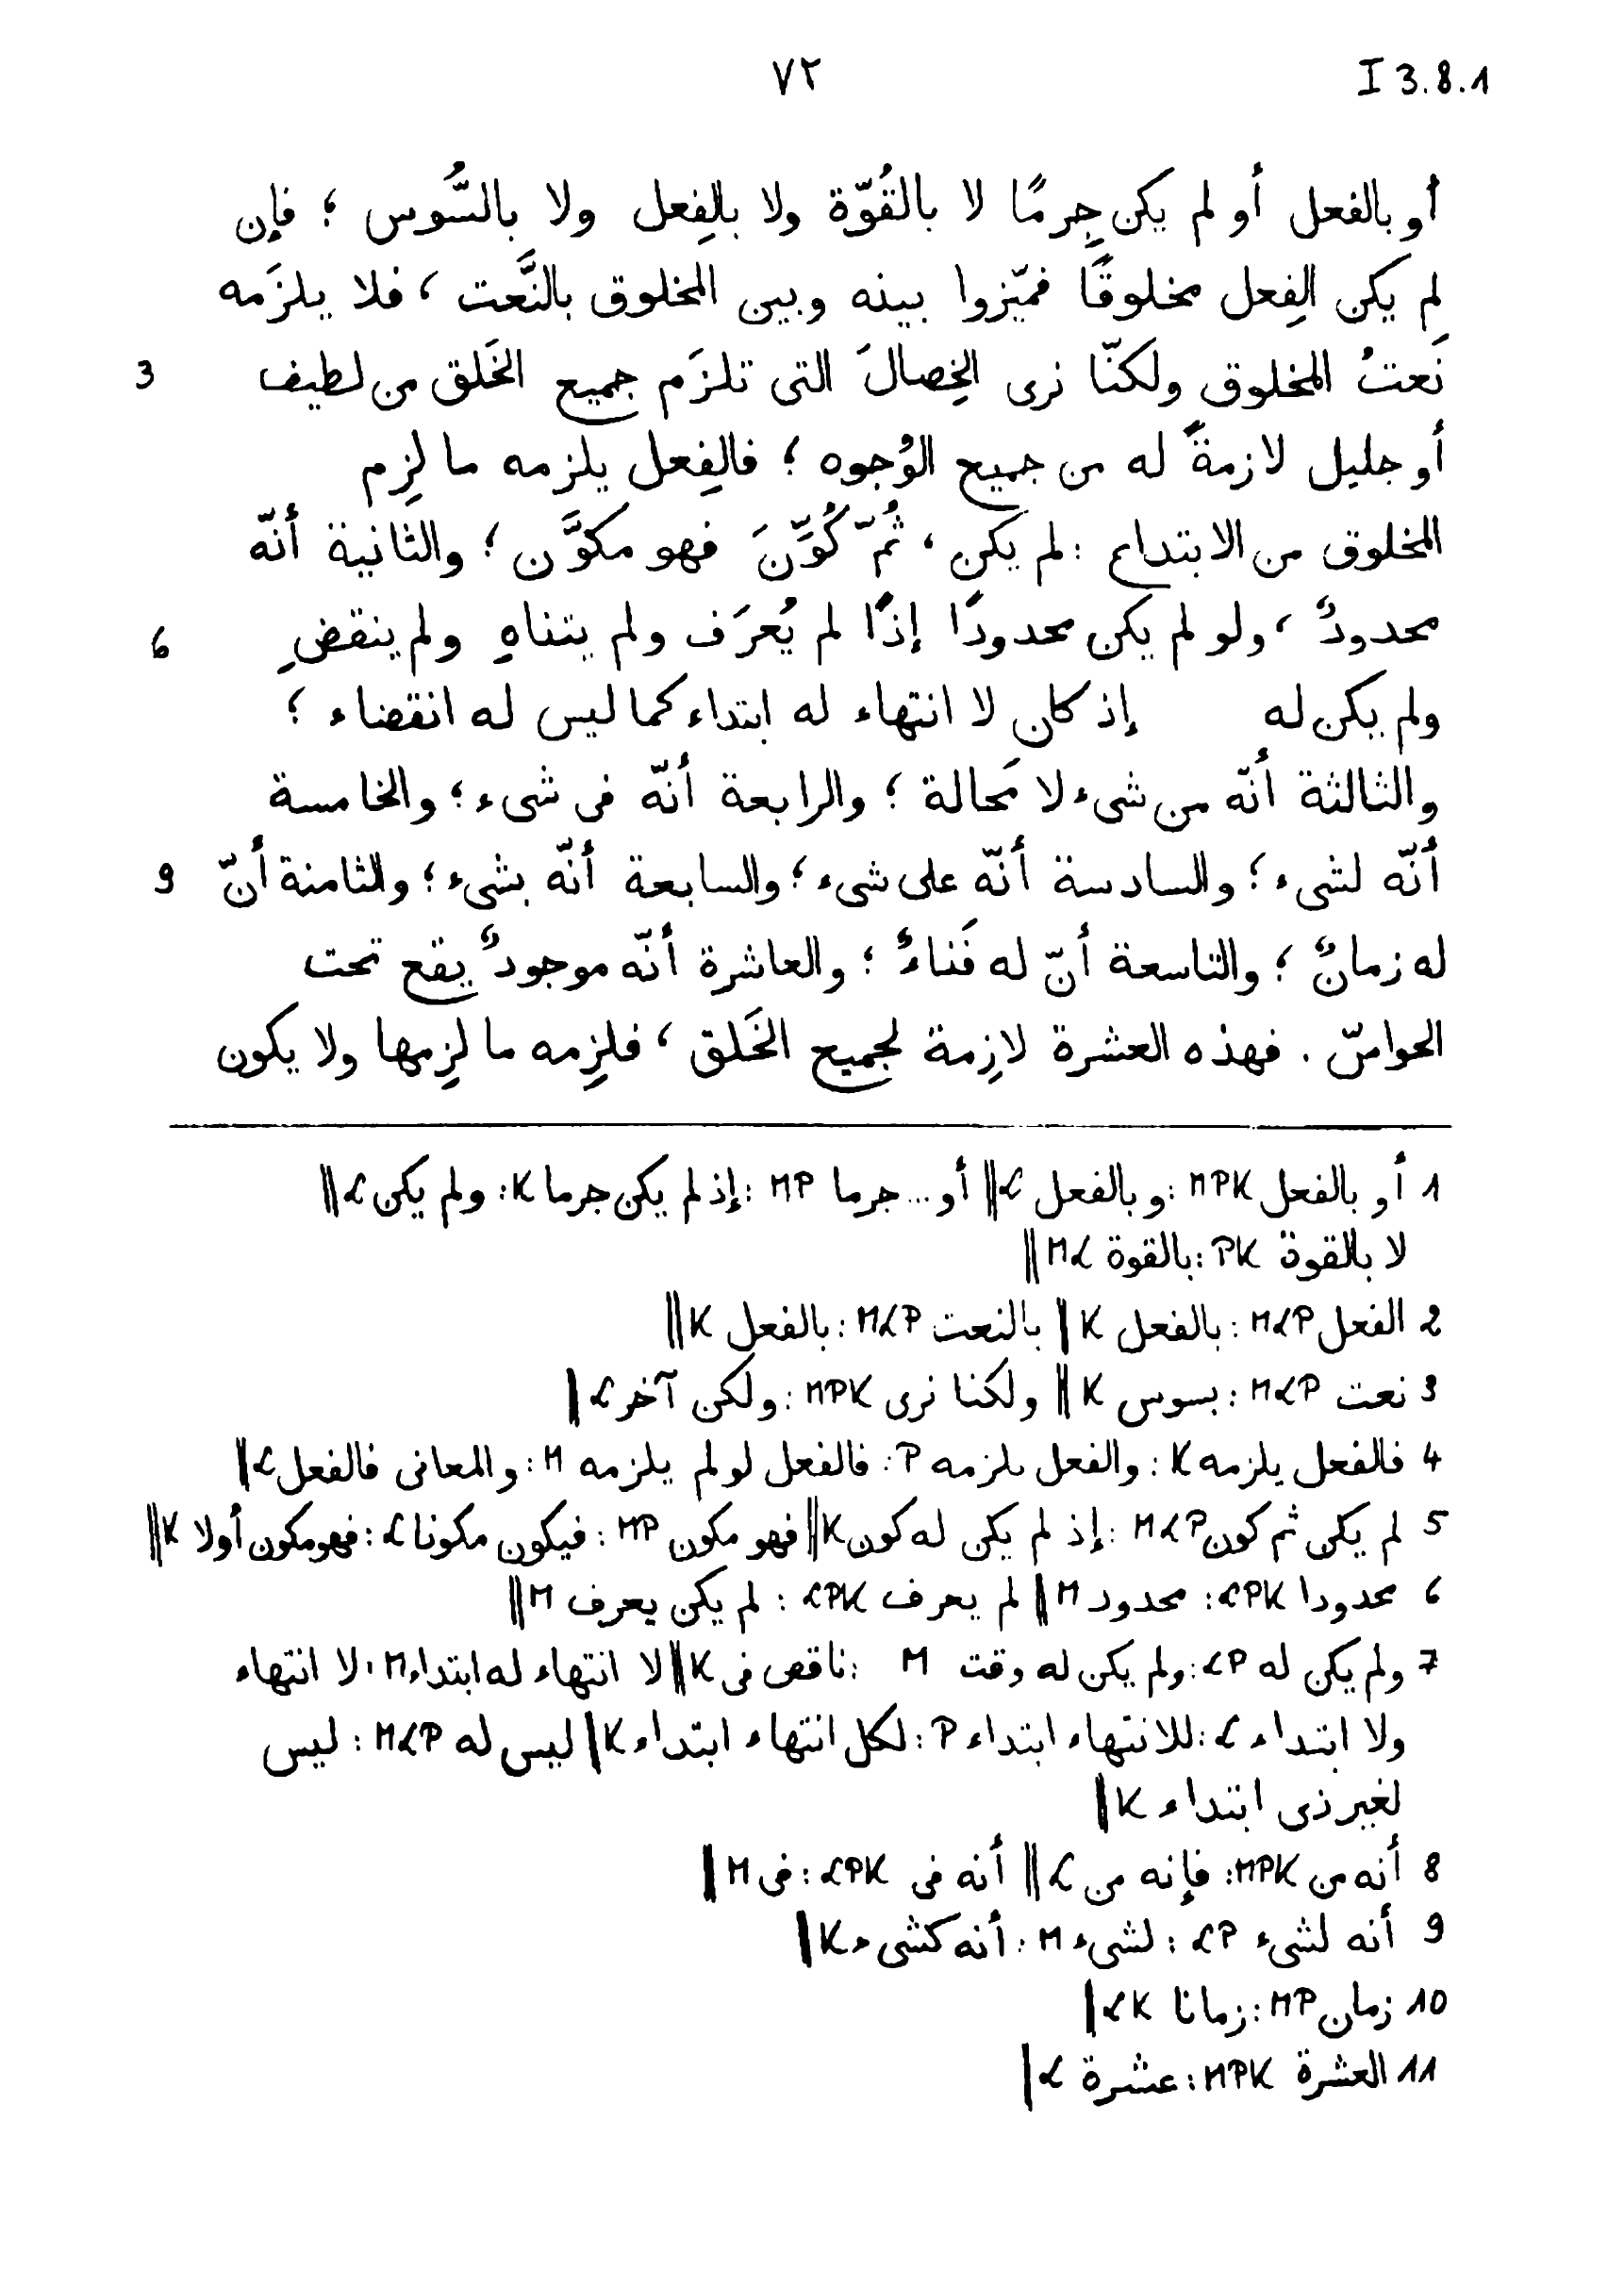 ٧٢
I 3.8.1
أو بالفعل أو لم يكن جِرمًا لا بالقُوّة ولا بالفِعل ولا بالسُّوس ؛ فإن
لم يكن الفِعل مخلوقًا فميّزوا بينه وبين المخلوق بالنَّعت ، فلا يلزَمه
نَعتُ المخلوق ولكنّا نرى الخِصالَ التى تلزَم جميع الخَلق من لطيف 3
أو جليل لازمةً له من جميع الوُجوه ؛ فالفِعل يلزمه ما لزِم
المخلوق من الابتداع : لم يكن ، ثُمّ كُوِّنَ فهو مكوَّن ؛ والثانية أنّه
محدودٌ ، ولو لم يكن محدودًا إذًا لم يُعرَف ولم يتناهِ ولم ينقضِ 6
ولم يكن له إذ كان لا انتهاء له ابتداء كما ليس له انقضاء ؛
والثالثة أنّه من شىء لا مَحالة ؛ والرابعة أنّه فى شىء ؛ والخامسة
أنّه لشىء ؛ والسادسة أنّه على شىء ؛ والسابعة أنّه بشىء ؛ والثامنة أنّ 9
له زمانٌ ؛ والتاسعة أنّ له فَناءٌ ؛ والعاشرة أنّه موجودٌ يقع تحت
الحواسّ . فهذه العشرة لازِمة لجميع الخَلق ، فلزِمه ما لزِمها ولا يكون
1 أو بالفعل MPK : وبالفعل L || أو ... جرما MP : إذ لم يكن جرما K : ولم يكن L ||
لا بالقوة PK : بالقوة ML ||
2 الفعل MLP : بالفعل K || بالنعت MLP : بالفعل K ||
3 نعت MLP : بسوس K || ولكنا نرى MPK : ولكن آخر L ||
4 فالفعل يلزمه K : والفعل ىلزمه P : فالفعل لو لم يلزمه M : والمعانى فالفعل L ||
5 لم يكن ثم كون MLP : إذ لم يكن له كون K || فهو مكون MP : فيكون مكونا L : فهو مكون أولا K ||
6 محدودا LPK : محدود M || لم يعرف LPK : لم يكن يعرف M ||
7 ولم يكن له LP : ولم يكن له وقت M : ناقص فى K || لا انتهاء له ابتداء M : لا انتهاء
ولا ابتداء L : للانتهاء ابتداء P : لكل انتهاء ابتداء K || ليس له MLP : ليس
لغير ذى ابتداء K ||
8 أنه من MPK : فإنه من L || أنه فى LPK : فى M ||
9 أنه لشىء LP : لشىء M : أنه كشىء K ||
10 زمان MP : زمانا LK ||
11 العشرة MPK : عشرة L ||